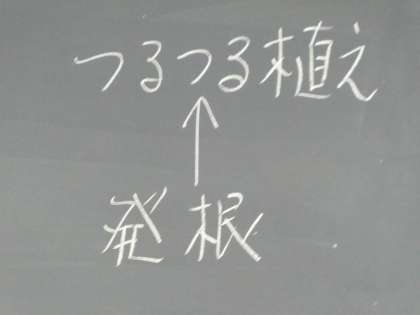 つるつる植え
↑
発根